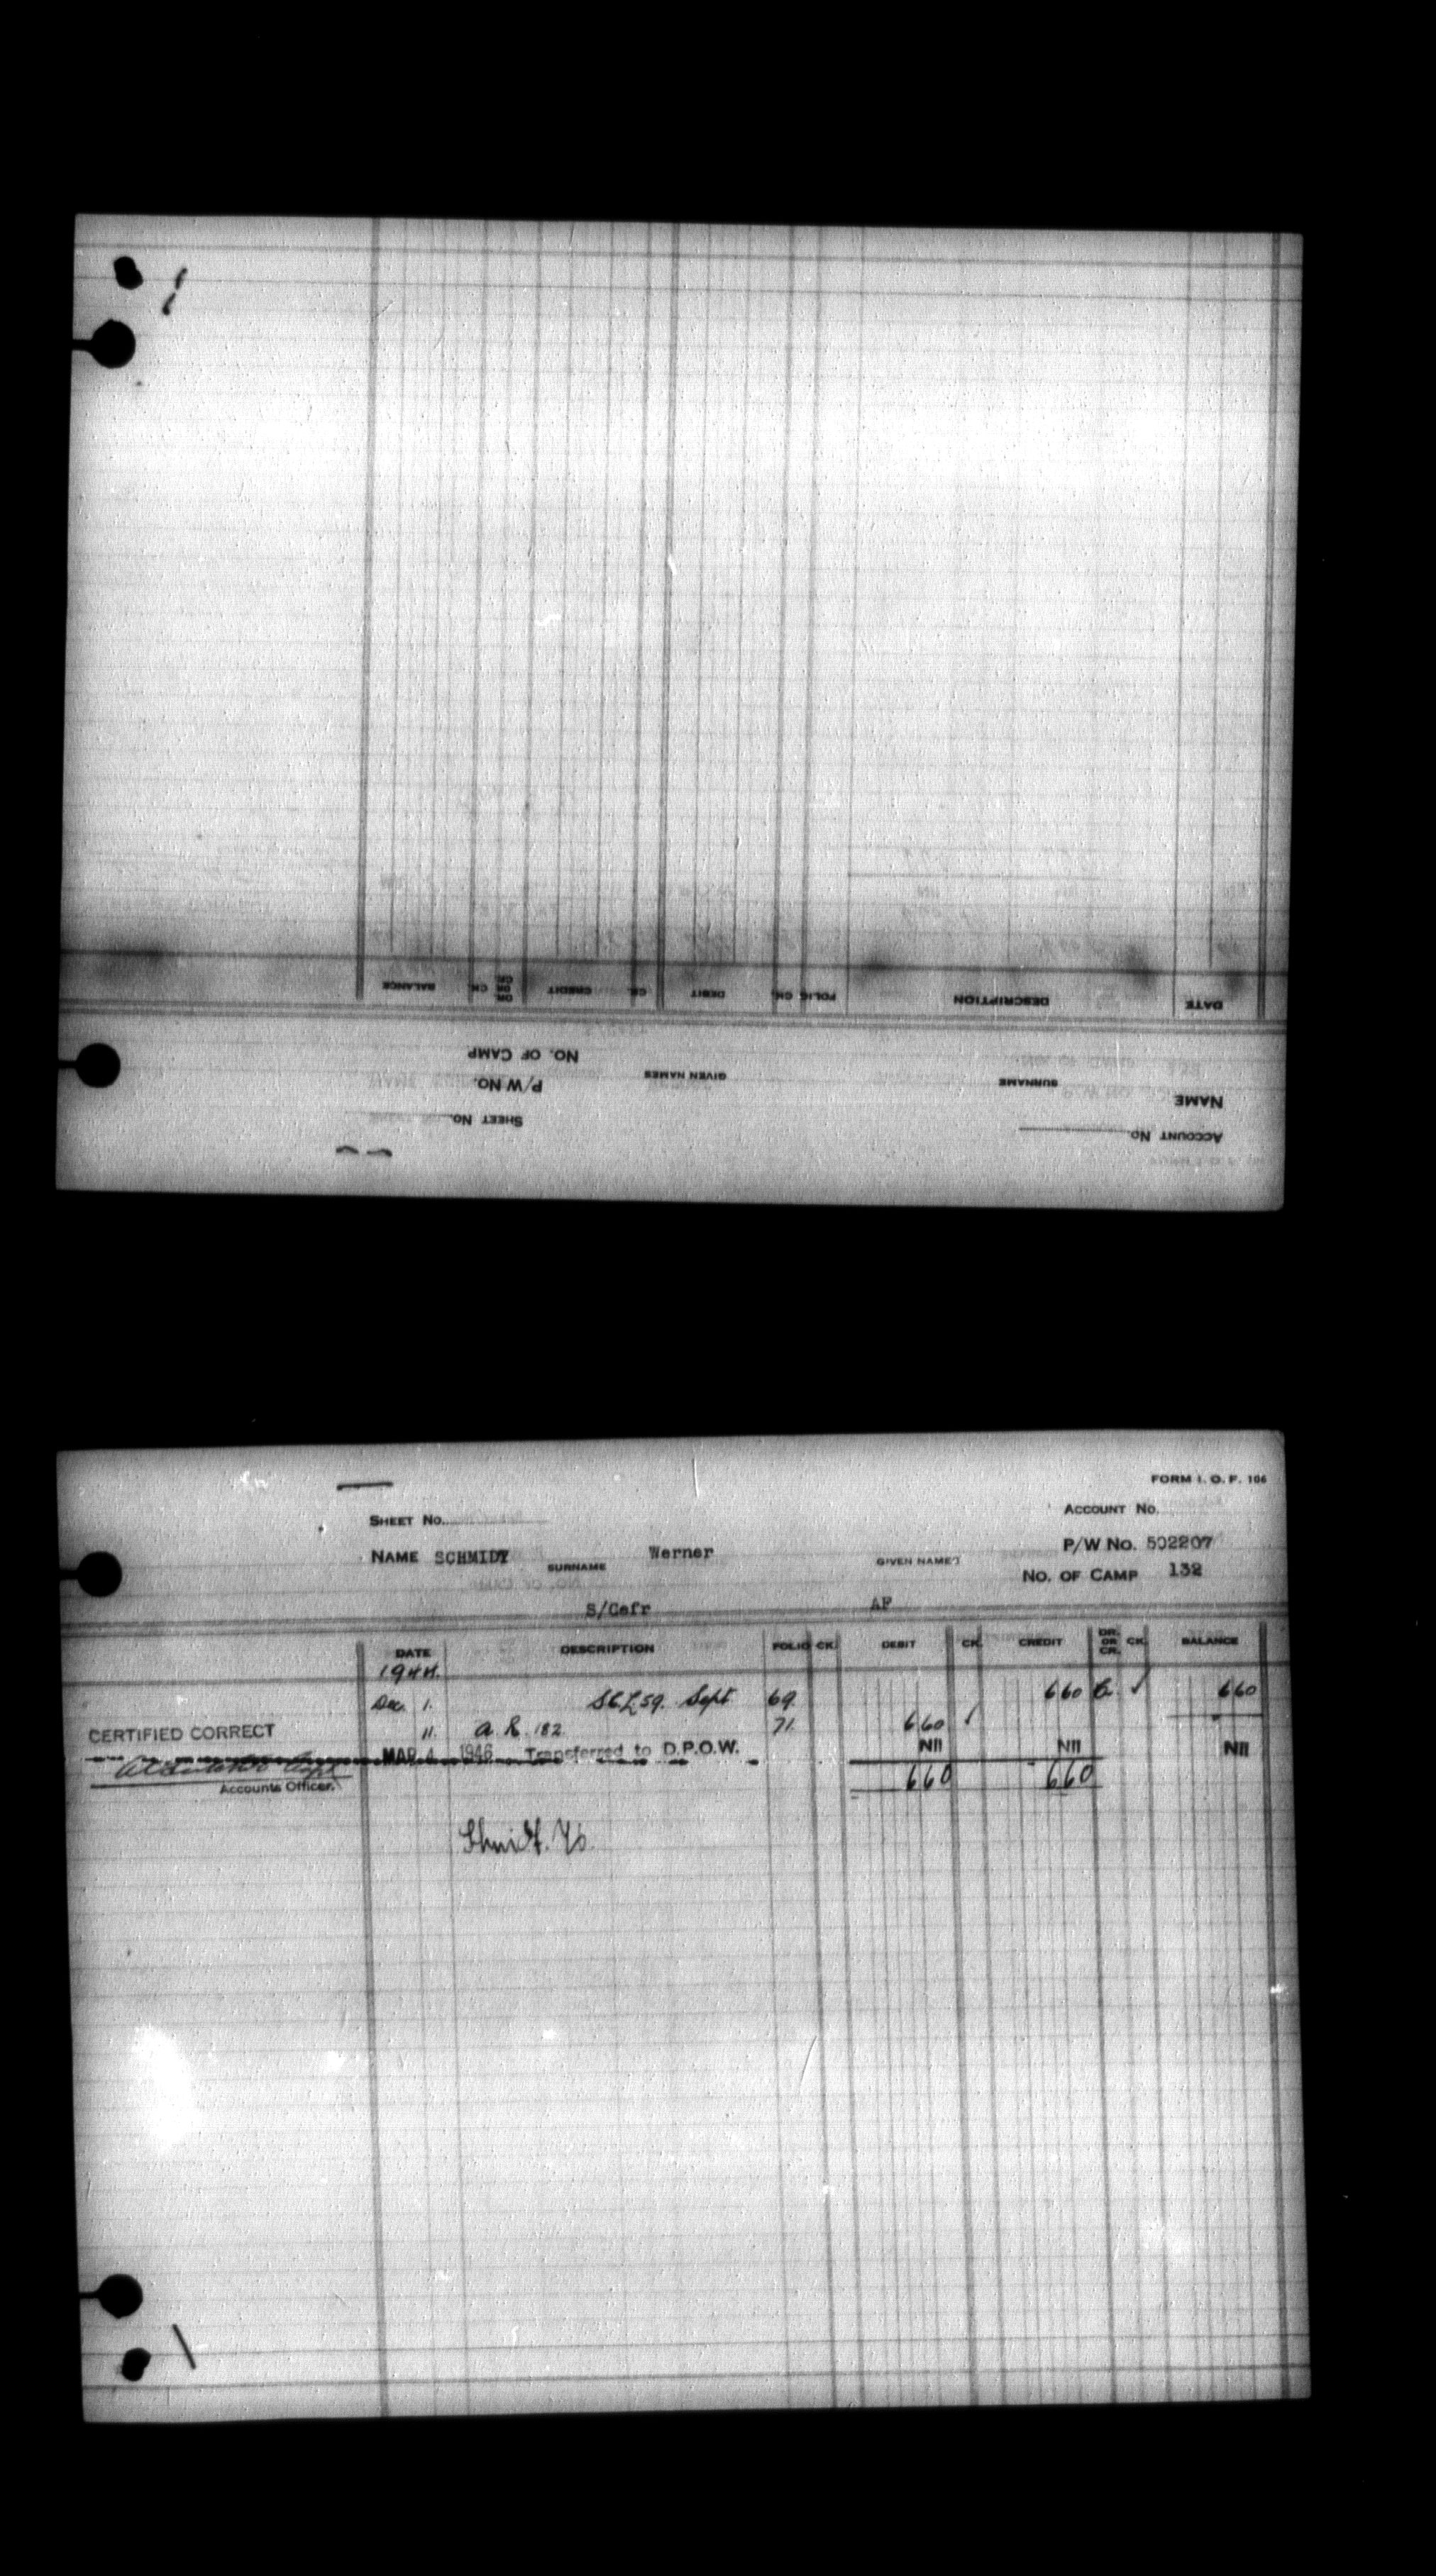 BALANCE CK. DR. OR CR. CREDIT CK. DEBIT CK. FOLIO DESCRIPTION DATE
NO. OF CAMP
P/W NO. GIVEN NAMES SURNAME
NAME
SHEET NO.
ACCOUNT NO.
FORM I. O. F. 106
SHEET NO. ACCOUNT NO.
NAME SCHMIDT SURNAME Werner GIVEN NAMES P/W NO. 502207
NO. OF CAMP 132
S/Gefr AF
DATE DESCRIPTION FOLIO CK. DEBIT CK. CREDIT DR. OR CR. CK. BALANCE
1944.
Dec 1. Sept 69. 660 660
CERTIFIED CORRECT 11. a. R. 182 71. 660
MAR 4 1946 Transferred to D.P.O.W. Nil Nil Nil
Accounts Officer. 660 660